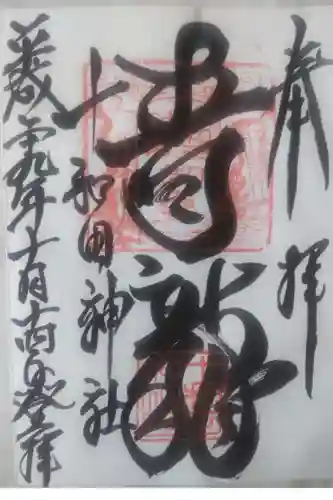 奉拝
青龍
十和田神社
平成廿九年十月十四日登拝